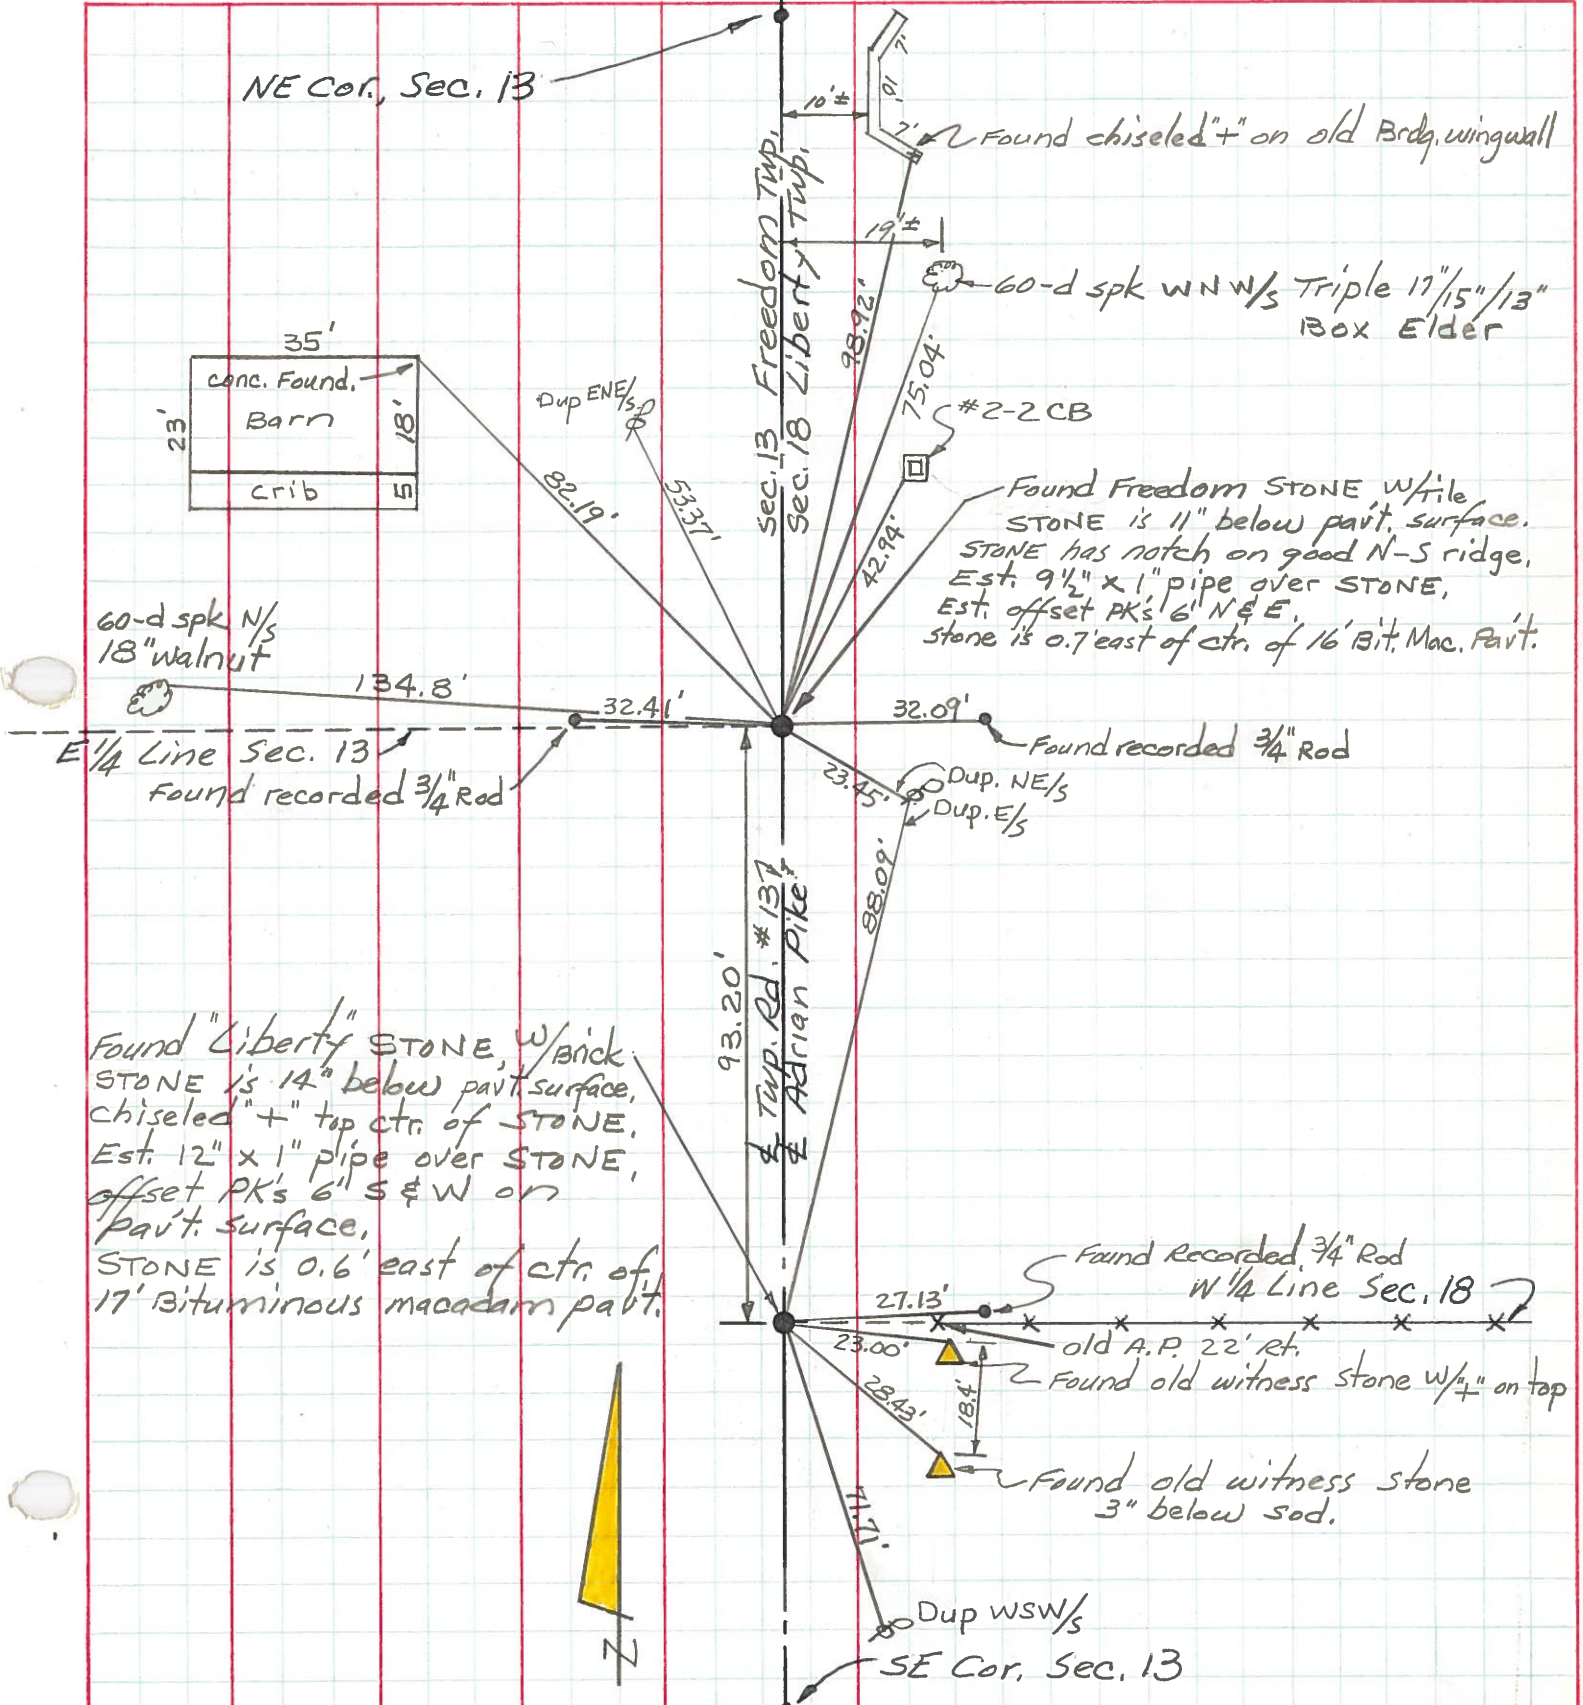 NE Cor., Sec. 13
7'
10'
7'
10'±
Found chiseled "+" on old Brdg. wingwall
19'±
Sec. 13 Freedom Twp.
Sec. 18 Liberty Twp.
98.92'
60-d spk WNW/s Triple 17"/15"/13"
Box Elder
75.04'
35'
conc. Found.
Barn
23'
18'
Crib
5
Dup ENE/s
#2-2 CB
82.19'
53.37'
42.94'
Found Freedom STONE, W/tile
STONE is 11" below pav't. surface.
STONE has notch on good N-S ridge,
Est. 9½" x 1" pipe over STONE,
Est. offset PK's 6' N & E,
stone is 0.7' east of ctr. of 16' Bit. Mac. Pav't.
60-d spk N/s
18" Walnut
134.8'
32.41'
32.09'
E 1/4 Line Sec. 13
Found recorded 3/4" Rod
Found recorded 3/4" Rod
23.45'
Dup. NE/s
Dup. E/s
88.09'
93.20'
℄ Twp. Rd. #137
℄ Adrian Pike
Found "Liberty" STONE, W/Brick
STONE is 14" below pav't. surface,
chiseled "+" top ctr. of STONE,
Est. 12" x 1" pipe over STONE,
offset PK's 6' S & W on
pav't. surface,
STONE is 0.6' east of ctr. of
17' Bituminous macadam pav't.
Found Recorded 3/4" Rod
W 1/4 Line Sec. 18
27.13'
23.00'
old A.P. 22' Rt.
Found old witness stone W/"+" on top
28.43'
18.4'
Found old witness stone
3" below sod.
71.71'
Dup WSW/s
N
SE Cor. Sec. 13